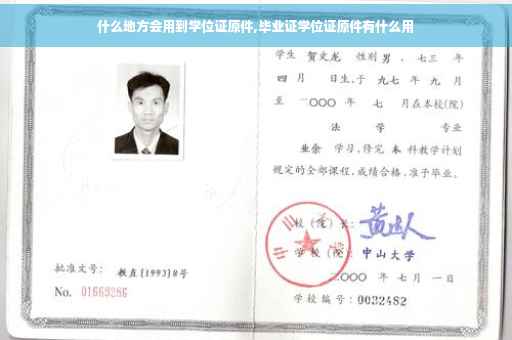 什么地方会用到学位证原件,毕业证学位证原件有什么用
学生 贺文龙 性别 男 、七三 年
四 月 日生,于 九七 年 九 月
至 二〇〇〇 年 七 月在本校(院)
法 学 专业
业余 学习,修完 本 科教学计划
规定的全部课程,成绩合格,准予毕业。
校(院)长:
学校(院) 中山大学
二〇〇〇 年 七 月 一 日
批准文号: 教直[1993]8号
No. 01669286
学校编号: 0032482